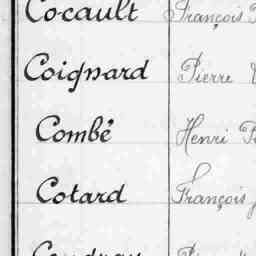 Cocault François
Coignard Pierre
Combé Henri
Cotard François